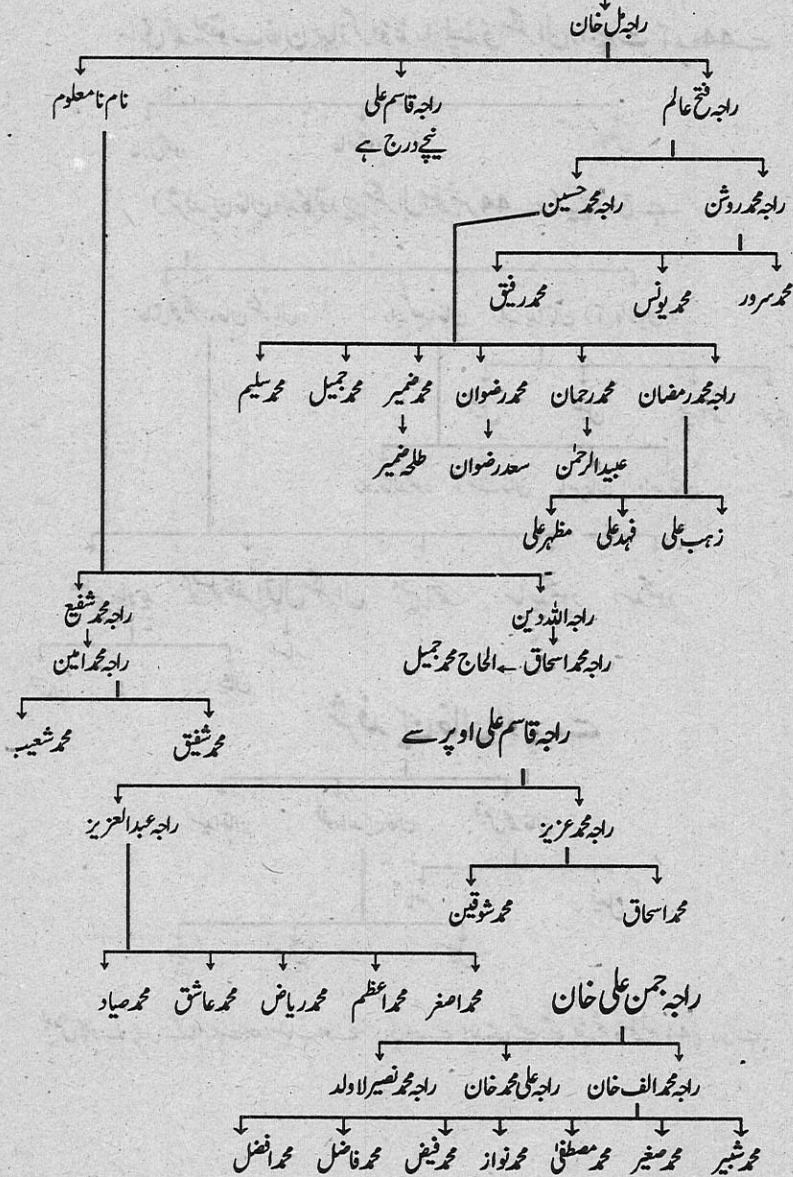 راجہ مل خان
راجہ فتح عالم راجہ قاسم علی نام نامعلوم
نیچے درج ہے
راجہ محمد روشن راجہ محمد حسین
محمد سرور محمد یونس محمد رفیق
راجہ محمد رمضان محمد رحمان محمد رضوان محمد ضمیر محمد جمیل محمد سلیم
عبید الرحمٰن سعد رضوان طلحہ ضمیر
زہب علی فہد علی مظہر علی
راجہ اللہ دین راجہ محمد شفیع
راجہ محمد اسحاق ← الحاج محمد جمیل راجہ محمد امین
محمد شفیق محمد شعیب
راجہ قاسم علی اوپر سے
راجہ محمد عزیز راجہ عبدالعزیز
محمد اسحاق محمد شوقین
محمد اصغر محمد اعظم محمد ریاض محمد عاشق محمد صیاد
راجہ جمن علی خان
راجہ محمد الف خان راجہ علی محمد خان راجہ محمد نصیر لاولد
محمد شبیر محمد صغیر محمد مصطفیٰ محمد نواز محمد فیض محمد فاضل محمد افضل